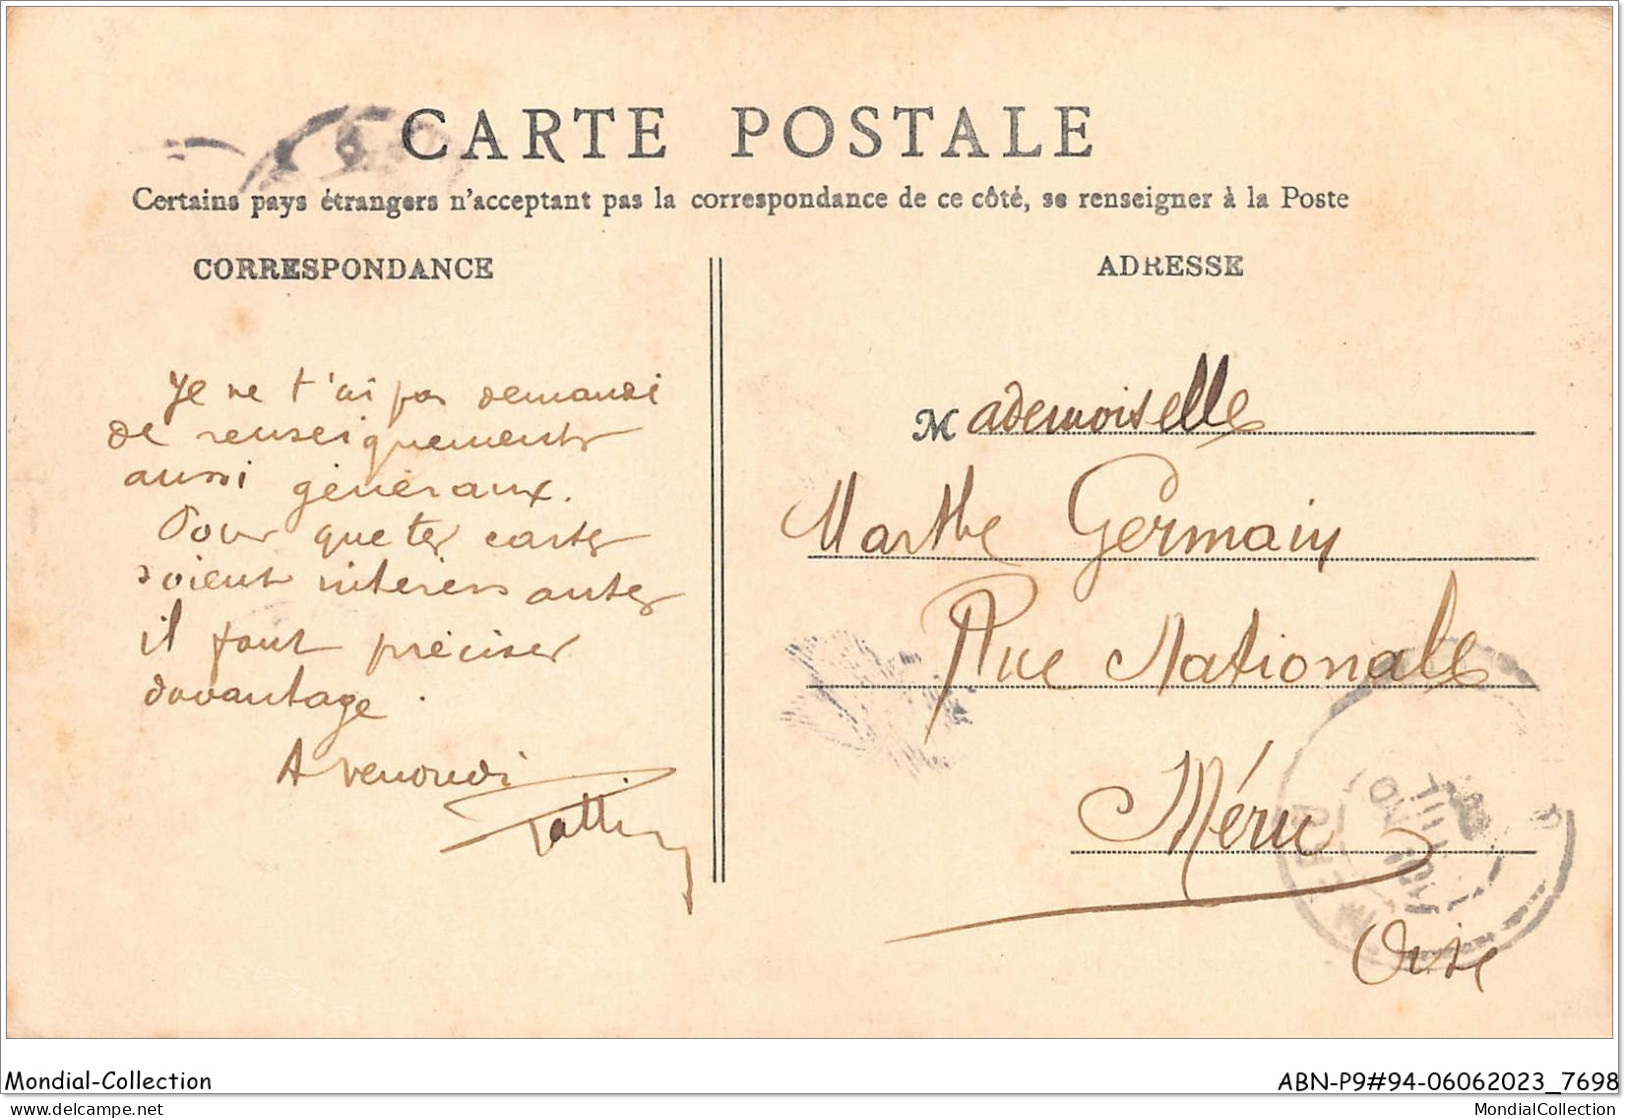 CARTE POSTALE
Certains pays étrangers n'acceptant pas la correspondance de ce côté, se renseigner à la Poste
CORRESPONDANCE
Je ne t'ai pas demandé
de renseignements
aussi généraux.
Pour que tes cartes
soient intéressantes
il faut préciser
davantage.
A venoudi
ADRESSE
Mademoiselle
Marthe Germain
Rue Nationale
Méru
Oise
Mondial-Collection
ABN-P9#94-06062023_7698
delcampe.net
MondialCollection